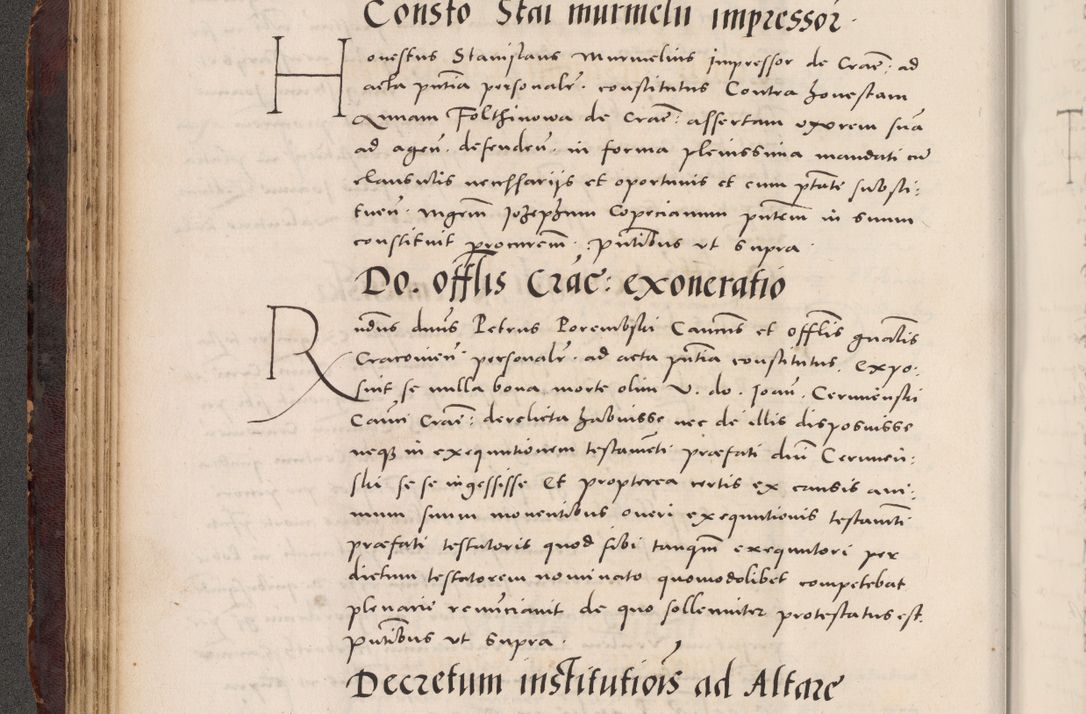 Consto Stai murmelii impressor.
Honestus Stanislaus Murmelius Impressor de Crac̄: ad
acta pn̄tia personalr̄. constitutus Contra honestam
Annam Folthinowa de Crac̄: assertam uxorem suā
ad agen̄. defenden̄. in forma plenissima mandati cū
clausulis necessariis et oportunis et cum ptāte substi:
tuen̄. Mgrm̄ Iozephum Copecianum pn̄tem in suum
constituit procurem̄. pn̄tibus ut supra.
Do. offlis Crac: exoneratio
Rndus dnus Petrus Porembski Cancus et offlis gnalis
Cracovien̄. personalr̄. ad acta pn̄tia constitutus. Expo.
suit se nulla bona morte olim V. do. Ioan̄. Cermiēnski
Canci Crac̄: derelicta habuisse nec de illis disposuisse
neque in exequutionem testamēti præfati dni Cermien:
ski se se ingessisse Et propterea certis ex causis ani:
mum suum moventibus oneri exequutionis testamti
præfati testatoris quod sibi tanqm̄ exequutori per
dictum testatorem nominato quomodolibet competebat
plenarie renūciavit de quo sollemniter protestatus est.
pn̄tibus ut supra.
Decretum institutiois ad Altare